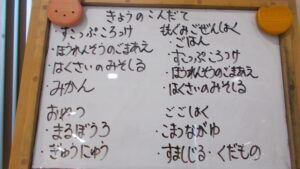 きょうのこんだて
・すこっぷころっけ
・ほうれんそうのごまあえ
・はくさいのみそしる
・みかん
おやつ
・まるぼうろ
・ぎゅうにゅう
・ごはん
・すこっぷころっけ
・ほうれんそうのごまあえ
・はくさいのみそしる
ごごしょく
・こまつながゆ
・すましじる・くだもの